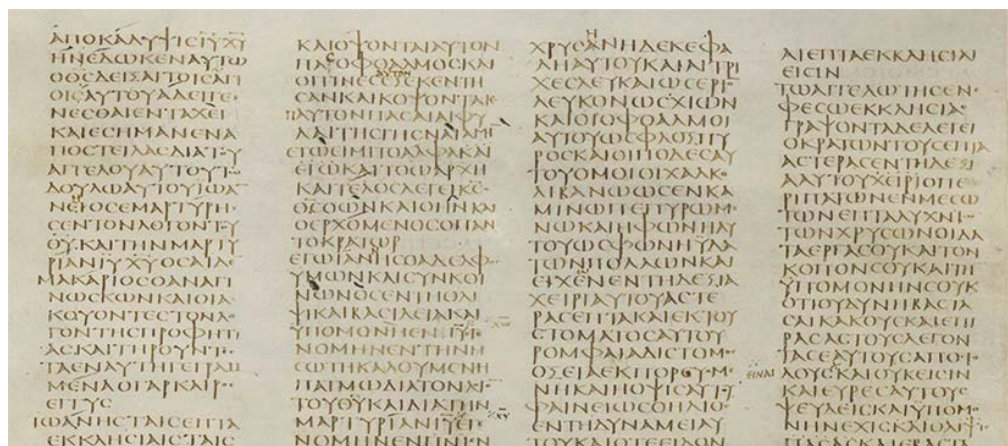 ΑΠΟΚΑΛΥΨΙϹΙ̅Υ̅Χ̅Υ̅
ΗΝΕΔΩΚΕΝΑΥΤΩ
ΟΘ̅Ϲ̅ΔΕΙΞΑΙΤΟΙϹΑΓΙ
ΟΙϹΑΥΤΟΥΑΔΕΙΓΕ
ΝΕϹΘΑΙΕΝΤΑΧΕΙ
ΚΑΙΕϹΗΜΑΝΕΝΑ
ΠΟϹΤΕΙΛΑϹΔΙΑΤΟΥ
ΑΓΓΕΛΟΥΑΥΤΟΥΤΩ
ΔΟΥΛΩΑΥΤΟΥΙΩΑ
ΝΕΙΟϹΕΜΑΡΤΥΡΗ
ϹΕΝΤΟΝΛΟΓΟΝΤΟΥ
Θ̅Υ̅ΚΑΙΤΗΝΜΑΡΤΥ
ΡΙΑΝΙ̅Υ̅Χ̅Υ̅ΟϹΑΙΔΕ
ΜΑΚΑΡΙΟϹΟΑΝΑΓΙ
ΝΩϹΚΩΝΚΑΙΟΙΑ
ΚΟΥΟΝΤΕϹΤΟΝΛΟ
ΓΟΝΤΗϹΠΡΟΦΗΤΙ
ΑϹΚΑΙΤΗΡΟΥΝΤΕϹ
ΤΑΕΝΑΥΤΗΓΕΓΡΑΜ
ΜΕΝΑΟΓΑΡΚΑΙΡΟϹ
ΕΓΓΥϹ
ΙΩΑΝΗϹΤΑΙϹΕΠΤΑ
ΕΚΚΛΗϹΙΑΙϹΤΑΙϹ
ΚΑΙΟΨΟΝΤΑΙΑΥΤΟΝ
ΠΑϹΟΦΘΑΛΜΟϹΚΑΙ
ΟΙΤΙΝΕϹΕΞΕΚΕΝΤΗ
ϹΑΝΚΑΙΚΟΨΟΝΤΑΙΕ
ΠΑΥΤΟΝΠΑϹΑΙΑΙΦΥ
ΛΑΙΤΗϹΓΗϹΝΑΙΑΜΗ
ΕΓΩΕΙΜΙΤΟΑΛΦΑΚΑΙ
ΕΓΩΚΑΙΤΟΩΑΡΧΗ
ΚΑΙΤΕΛΟϹΛΕΓΕΙΚ̅Ϲ̅
ΟΘ̅Ϲ̅ΟΩΝΚΑΙΟΗΝΚΑΙ
ΟΕΡΧΟΜΕΝΟϹΟΠΑΝ
ΤΟΚΡΑΤΩΡ
ΕΓΩΙΩΑΝΗϹΟΑΔΕΛΦΟϹ
ΥΜΩΝΚΑΙϹΥΝΚΟΙ
ΝΩΝΟϹΕΝΤΗΘΛΙ
ΨΙΚΑΙΒΑϹΙΛΕΙΑΚΑΙ
ΥΠΟΜΟΝΗΕΝΙ̅Υ̅ΕΓΕ
ΝΟΜΗΝΕΝΤΗΝΗ
ϹΩΤΗΚΑΛΟΥΜΕΝΗ
ΠΑΤΜΩΔΙΑΤΟΝΛΟ
ΤΟΥΘ̅Υ̅ΚΑΙΔΙΑΤΗΝ
ΜΑΡΤΥΡΙΑΝΙ̅Υ̅ΕΓΕ
Χ̅Υ̅
ΝΟΜΗΝΕΝΠΝΙ
ΧΡΥϹΑΝΗΔΕΚΕΦΑ
ΛΗΑΥΤΟΥΚΑΙΑΙΤΡΙ
ΧΕϹΛΕΥΚΑΙΩϹΕΡΙΟΝ
ΛΕΥΚΟΝΩϹΧΙΩΝ
ΚΑΙΟΙΟΦΘΑΛΜΟΙ
ΑΥΤΟΥΩϹΦΛΟΞΠΥ
ΡΟϹΚΑΙΟΙΠΟΔΕϹΑΥ
ΤΟΥΟΜΟΙΟΙΧΑΛΚΟ
ΛΙΒΑΝΩΩϹΕΝΚΑ
ΜΙΝΩΠΕΠΥΡΩΜΕ
ΝΩΚΑΙΗΦΩΝΗΑΥ
ΤΟΥΩϹΦΩΝΗΥΔΑ
ΤΩΝΠΟΛΛΩΝΚΑΙ
ΕΙΧΕΝΕΝΤΗΔΕΞΙΑ
ΧΕΙΡΙΑΥΤΟΥΑϹΤΕ
ΡΑϹΕΠΤΑΚΑΙΕΚΤΟΥ
ϹΤΟΜΑΤΟϹΑΥΤΟΥ
ΡΟΜΦΑΙΑΔΙϹΤΟΜΟϹ
ΟΞΕΙΑΕΚΠΟΡΕΥΟΜΕ
ΝΗΚΑΙΗΟΨΙϹΑΥΤΟΥ
ΦΑΙΝΕΙΩϹΟΗΛΙΟϹ
ΕΝΤΗΔΥΝΑΜΕΙΑΥ
ΤΟΥΚΑΙΟΤΕΕΙΔΟΝ
ΑΙΕΠΤΑΕΚΚΛΗϹΙΑΙ
ΕΙϹΙΝ
ΤΩΑΓΓΕΛΩΤΗϹΕΝΕ
ΦΕϹΩΕΚΚΛΗϹΙΑϹ
ΓΡΑΨΟΝΤΑΔΕΛΕΓΕΙ
ΟΚΡΑΤΩΝΤΟΥϹΕΠΤΑ
ΑϹΤΕΡΑϹΕΝΤΗΔΕΞΙ
ΑΑΥΤΟΥΧΕΙΡΙΟΠΕ
ΡΙΠΑΤΩΝΕΝΜΕϹΩ
ΤΩΝΕΠΤΑΛΥΧΝΙ
ΤΩΝΧΡΥϹΩΝΟΙΔΑ
ΤΑΕΡΓΑϹΟΥΚΑΙΤΟΝ
ΚΟΠΟΝϹΟΥΚΑΙΤΗ
ΥΠΟΜΟΝΗΝϹΟΥΚ
ΟΤΙΟΥΔΥΝΗΒΑϹΤΑ
ϹΑΙΚΑΚΟΥϹΚΑΙΕΠΙ
ΡΑϹΑϹΤΟΥϹΛΕΓΟΝ
ΤΑϹΕΑΥΤΟΥϹΑΠΟϹΤΟ
ΕΙΝΑΙ
ΛΟΥϹΚΑΙΟΥΚΕΙϹΙΝ
ΚΑΙΕΥΡΕϹΑΥΤΟΥϹ
ΨΕΥΔΕΙϹΚΑΙΥΠΟΜΟ
ΝΗΝΕΧΙϹΚΑΙΘΛΙΨΙϹ